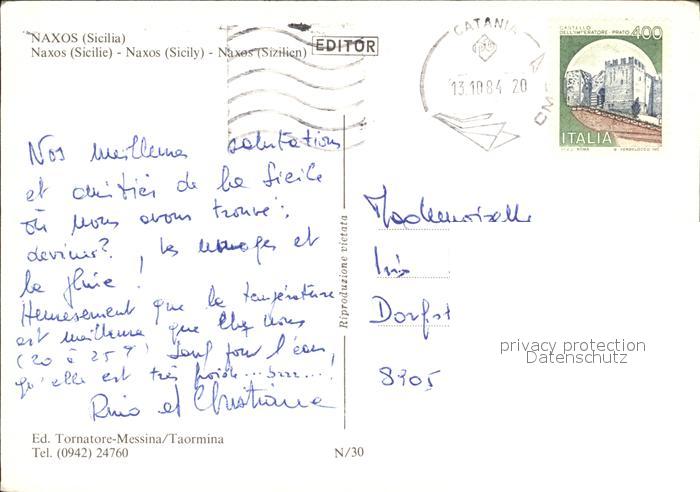 NAXOS (Sicilia)
Naxos (Sicilie) - Naxos (Sicily) - Naxos (Sizilien)
EDITOR
CATANIA
CMP
13.10.84 20
CASTELLO
DELL'IMPERATORE - PRATO
400
ITALIA
Nos meilleures salutations
et amitiés de la Sicile
où nous avons trouvé:,
devinez?, les nuages et
la pluie!
Heureusement que la température
est meilleure que chez nous
(20 à 25°) sauf pour l'eau,
qu'elle est très froide....brrr....!
Rino et Christiane
Riproduzione vietata
Mademoiselle
Iris
Dorfst
8905
privacy protection
Datenschutz
Ed. Tornatore-Messina/Taormina
Tel. (0942) 24760
N/30